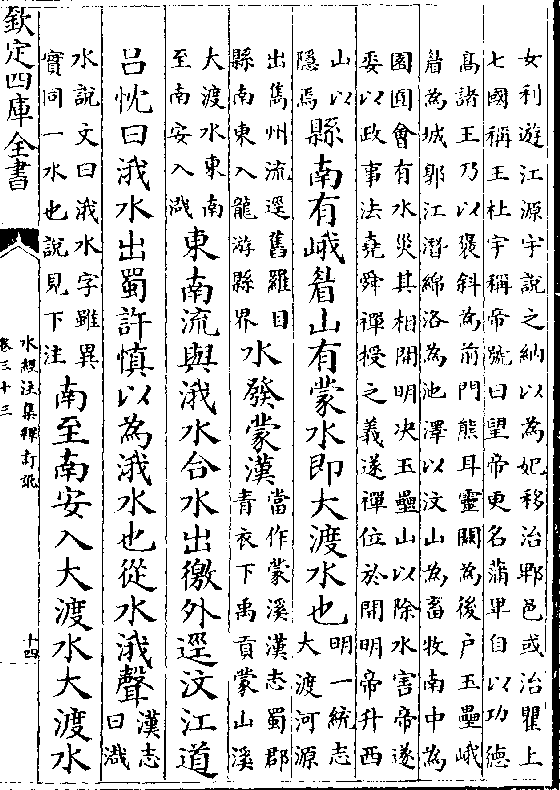 女利遊江源宇說之納以為妃移治郫邑或治瞿上
七國稱王杜宇稱帝號曰望帝更名蒲卑自以功德
髙諸王乃以褒斜為前門熊耳靈關為後户玉壘峨
眉為城郭江潛綿洛為池澤以汶山為畜牧南中為
園囿會有水災其相開明决玉壘山以除水害帝遂
委以政事法堯舜禪授之義遂禪位於開明帝升西
山以
隱焉
縣南有峨眉山有蒙水即大渡水也
明一統志
大渡河源
出雟州流逕舊羅目
縣南東入龍游縣界
水發蒙漢
當作蒙溪漢志蜀郡
青衣下禹貢蒙山溪
大渡水東南
至南安入渽
東南流與涐水合水出徼外逕汶江道
呂忱曰涐水出蜀許慎以為涐水也從水涐聲
漢志
曰渽
水說文曰涐水字雖異
實同一水也說見下注
南至南安入大渡水大渡水
欽定四庫全書
水經注集釋訂訛
卷三十三
十四